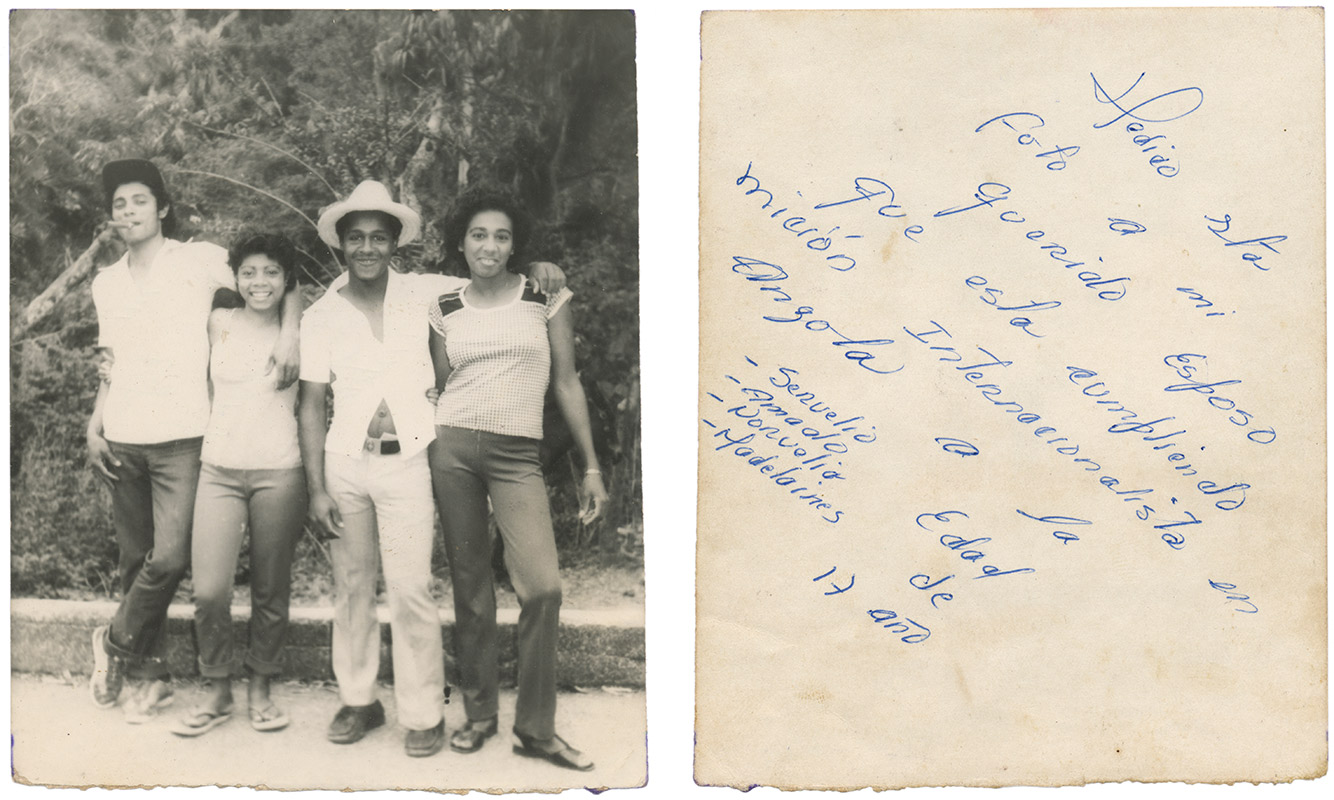 Dedico esta
Foto a mi
Querido Esposo
que esta cumpliendo
mición Internacionalista en
Angola a la
Edad
de
17 año
- Servelio
- Amado
- Norvelia
- Madelaines